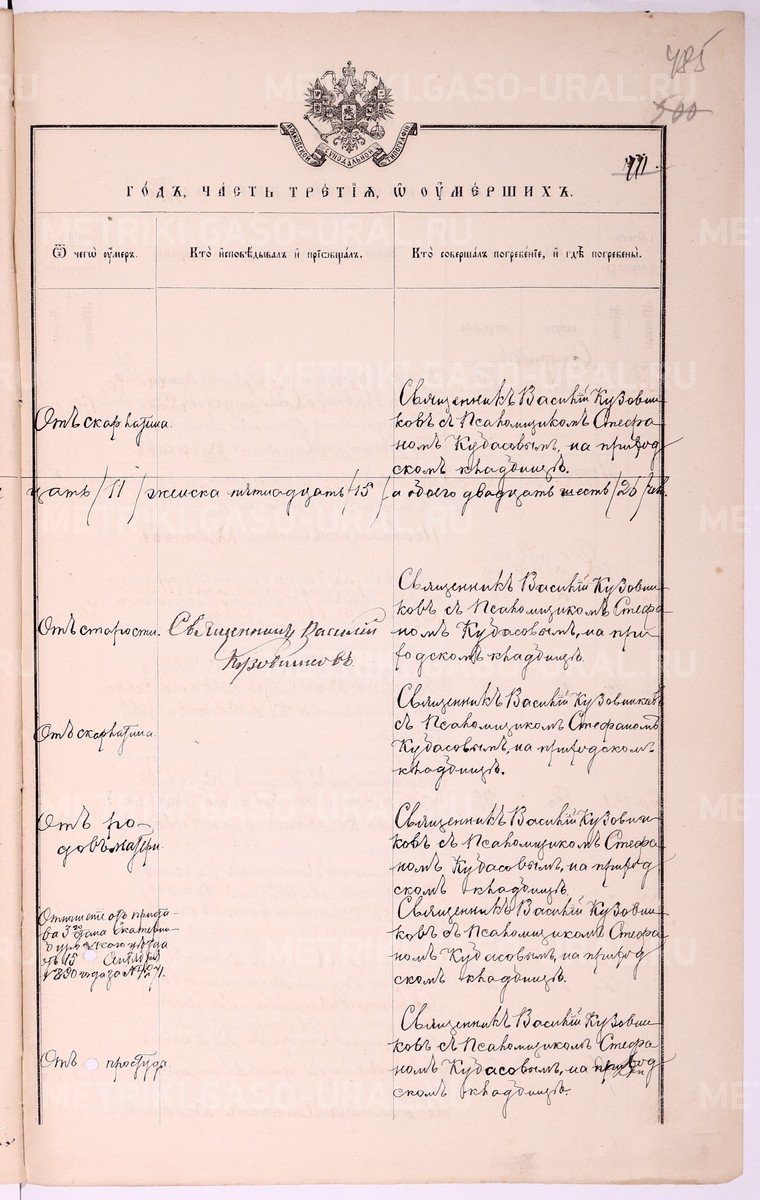 485
500
МОСКОВСКОЙ СѴНОДАЛЬНОЙ ТИПОГРАФІИ
ГОДЪ, ЧАСТЬ ТРЕТІЯ, Ѿ ОУМЕРШИХЪ.
Ѿ чегѡ оумеръ.
Кто исповѣдывалъ и пріѡбщалъ.
Кто совершалъ погребеніе, и гдѣ погребены.
Отъ скарлатина.
Священникъ Василій Кузовни-
ковъ съ Псаломщикомъ Стефа-
номъ Кубасовымъ, на приход-
скомъ кладбищѣ.
цать /11/ женска пятнадцать /15/ а обоего двадцать шесть /26/ чел.
Отъ старости.
Священникъ Василій
Кузовниковъ
Священникъ Василій Кузовни-
ковъ съ Псаломщикомъ Стефа-
номъ Кубасовымъ, на при-
ходскомъ кладбищѣ.
Отъ скарлатина.
Священникъ Василій Кузовниковъ
съ Псаломщикомъ Стефаномъ
Кубасовымъ, на приходскомъ
кладбищѣ.
Отъ ро-
довъ матери.
Священникъ Василій Кузовни-
ковъ съ Псаломщикомъ Стефа-
номъ Кубасовымъ, на приход-
скомъ кладбищѣ.
Отношеніе отъ приста-
ва 3го стана Екатерин-
бургскаго уѣзда
15
1890 года за №
Священникъ Василій Кузовни-
ковъ съ Псаломщикомъ Стефа-
номъ Кубасовымъ, на приход-
скомъ кладбищѣ.
Отъ простуды.
Священникъ Василій Кузовни-
ковъ съ Псаломщикомъ Стефа-
номъ Кубасовымъ, на приход-
скомъ кладбищѣ.
METRIKI.GASO-URAL.RU